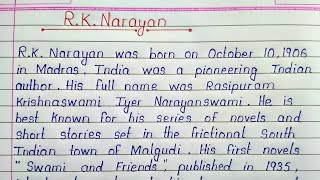 R.K. Narayan
R.K. Narayan was born on October 10,1906
in Madras, India was a pioneering Indian
author. His full name was Rasipuram
Krishnaswami Iyer Narayanswami. He is
best known for his series of novels and
short stories set in the frictional South
Indian town of Malgudi. His first novels
"Swami and Friends", published in 1935,